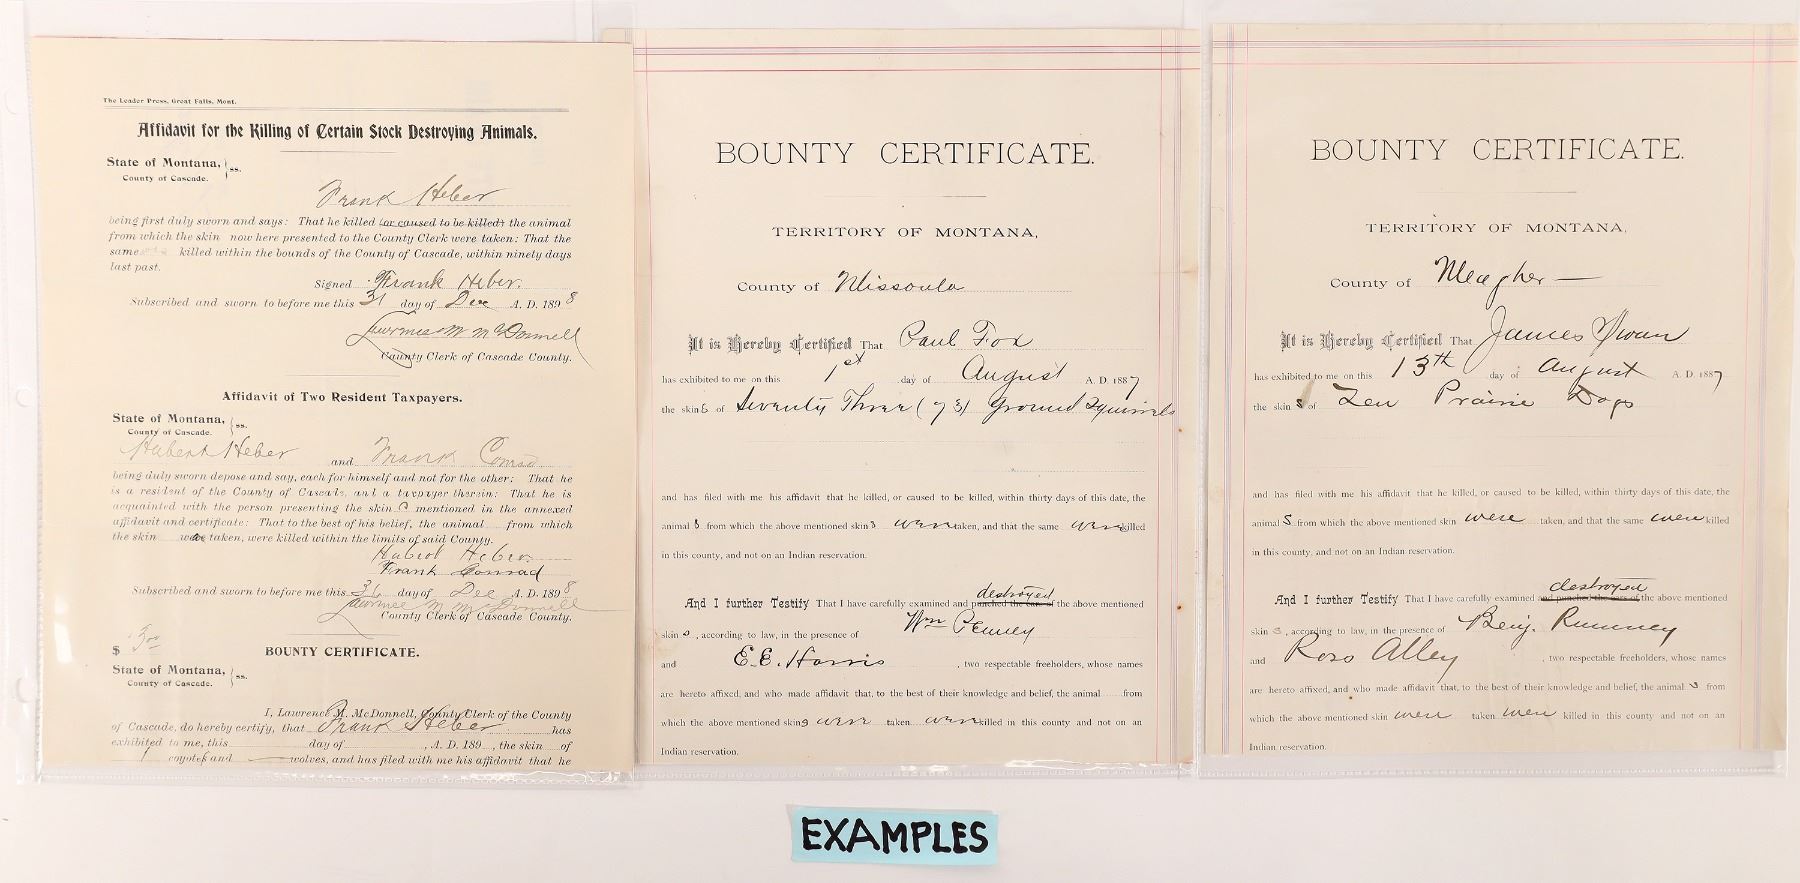 The Leader Press, Great Falls, Mont.
Affidavit for the Killing of Certain Stock Destroying Animals.
State of Montana, } ss.
County of Cascade.
Frank Heber
being first duly sworn and says: That he killed (or caused to be killed) the animal
from which the skin now here presented to the County Clerk were taken: That the
same killed within the bounds of the County of Cascade, within ninety days
last past.
Signed Frank Heber.
Subscribed and sworn to before me this 31 day of Dec A. D. 1898
Lawrence M McDonnell
County Clerk of Cascade County.
Affidavit of Two Resident Taxpayers.
State of Montana, } ss.
County of Cascade.
Hubert Heber and Frank Conrad
being duly sworn depose and say, each for himself and not for the other: That he
is a resident of the County of Cascade, and a taxpayer therein: That he is
acquainted with the person presenting the skin mentioned in the annexed
affidavit and certificate: That to the best of his belief, the animal from which
the skin were taken, were killed within the limits of said County.
Hubert Heber
Frank Conrad
Subscribed and sworn to before me this 31 day of Dec A. D. 1898
Lawrence M McDonnell
County Clerk of Cascade County.
$ 3.00
BOUNTY CERTIFICATE.
State of Montana, } ss.
County of Cascade.
I, Lawrence M. McDonnell, County Clerk of the County
of Cascade, do hereby certify, that Frank Heber has
exhibited to me, this day of , A. D. 189 , the skin of
1 coyotes and wolves, and has filed with me his affidavit that he
BOUNTY CERTIFICATE.
TERRITORY OF MONTANA,
County of Missoula
It is Hereby Certified That Paul Fox
has exhibited to me on this 1st day of August A. D. 1887
the skins of Seventy Three (73) Ground Squirrels
and has filed with me his affidavit that he killed, or caused to be killed, within thirty days of this date, the
animals from which the above mentioned skins were taken, and that the same were killed
in this county, and not on an Indian reservation.
destroyed
And I further Testify That I have carefully examined and punched the ears of the above mentioned
skins, according to law, in the presence of Wm Penney
and E. E. Harris , two respectable freeholders, whose names
are hereto affixed, and who made affidavit that, to the best of their knowledge and belief, the animal from
which the above mentioned skins were taken were killed in this county and not on an
Indian reservation.
BOUNTY CERTIFICATE.
TERRITORY OF MONTANA,
County of Meagher
It is Hereby Certified That James
has exhibited to me on this 13th day of August A. D. 1887
the skins of Ten Prairie Dogs
and has filed with me his affidavit that he killed, or caused to be killed, within thirty days of this date, the
animals from which the above mentioned skin were taken, and that the same were killed
in this county, and not on an Indian reservation.
destroyed
And I further Testify That I have carefully examined and punched the ears of the above mentioned
skins, according to law, in the presence of Benj. Rumney
and Ross Alley , two respectable freeholders, whose names
are hereto affixed, and who made affidavit that, to the best of their knowledge and belief, the animals from
which the above mentioned skin were taken were killed in this county and not on an
Indian reservation.
EXAMPLES